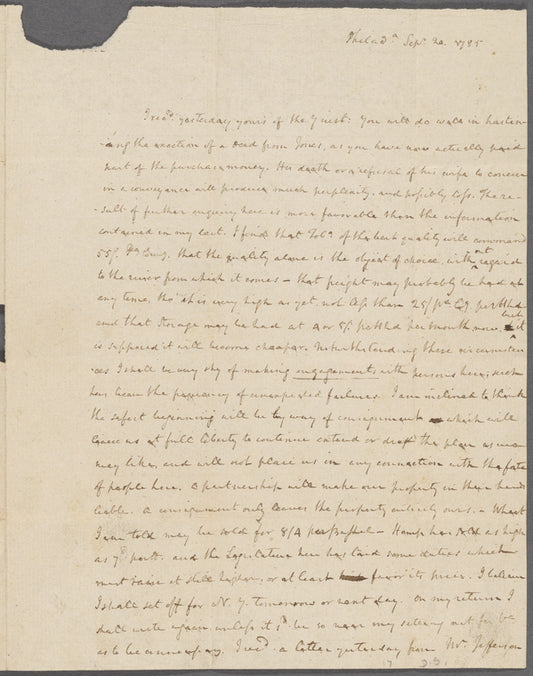 Philad.ᵃ Sepʳ. 20. 1785
I recᵈ. yesterday yours of the 7 inst: You will do well in hasten-
-ing the exaction of a deed from Jones, as you have now actually paid
part of the purchase money. His death or a refusal of his wife to concur
in a conveyance will produce much perplexity, and possibly loss. The re-
-sult of further enquiry here is more favorable than the information
contained in my last. I find that Tobº. of the best quality will command
55/. that the quality alone is the object of choice, without regard
to the river from which it comes — that freight may probably be had at
any time, tho' it is very high as yet, not less than 25/ per Hhd
and that storage may be had at 4 or 5/ per Hhd per month now, but it
is supposed it will become cheaper. Notwithstanding these circumstan-
-ces I shall be very shy of making engagements with persons here; such
has been the frequency of unexpected failures. I am inclined to think
the safest beginning will be by way of consignment which will
leave us at full liberty to continue extend or drop the plan as we
may like, and will not place us in any connection with the fate
of people here. A partnership will make our property in their hands
liable. A consignment only leaves the property entirely ours. — Wheat
I am told may be sold for 8/4 per Bushel — Hemp has sold as high
as 7ᵈ per lb. and the Legislature here has laid some duties which
must raise it still higher, or at least favor its price. I believe
I shall set off for N. Y. tomorrow or next day. On my return I
shall write again unless it sᵈ. be so near my setting out for
as to be unnecessary. I recᵈ. a letter yesterday from Mʳ. Jefferson